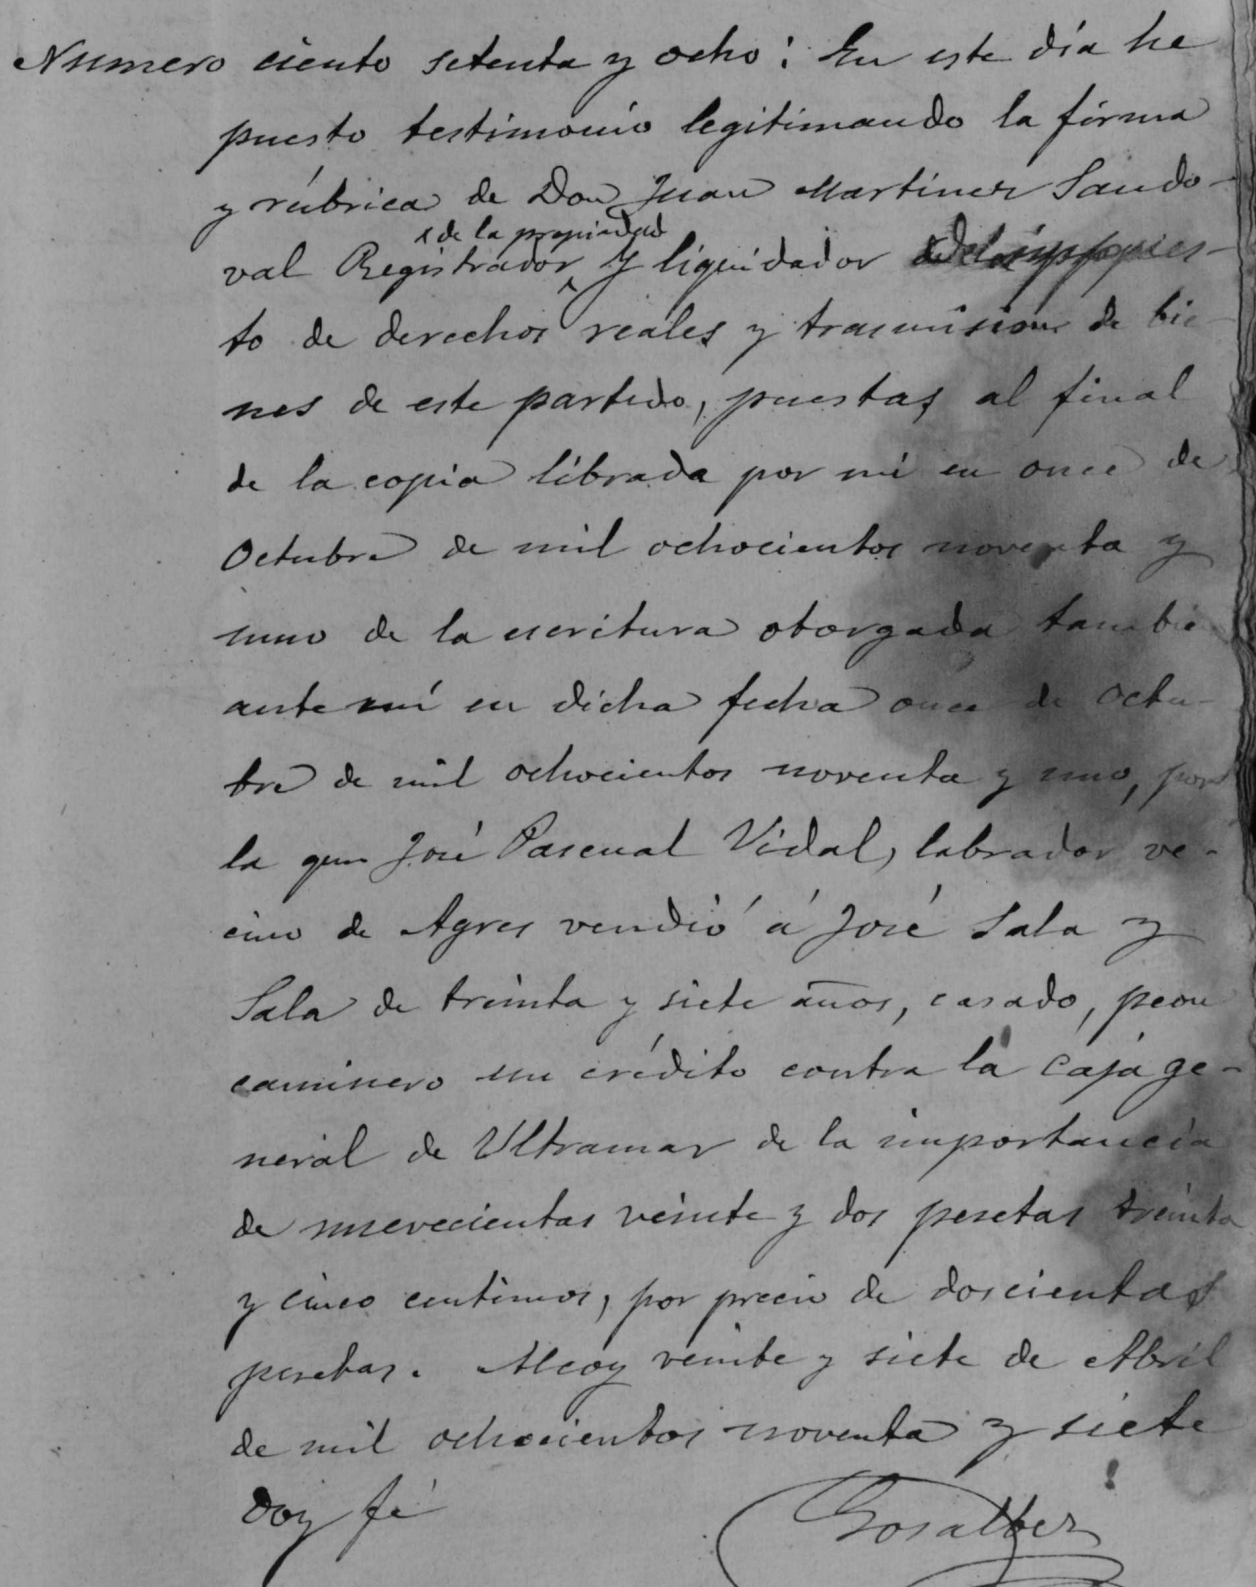 Numero ciento setenta y ocho: En este día he
puesto testimonio legitimando la firma
y rúbrica de Don Juan Martinez Sando-
de la propiedad
val Registrador y liquidador del impues-
to de derechos reales y trasmision de bie-
nes de este partido, puestas al final
de la copia librada por mi en once de
Octubre de mil ochocientos noventa y
uno de la escritura otorgada tambie
ante mí en dicha fecha once de Octu-
bre de mil ochocientos noventa y uno, por
la que José Pascual Vidal, labrador ve-
cino de Agres vendió á José Sala y
Sala de treinta y siete años, casado, peon
caminero un crédito contra la caja ge-
neral de Ultramar de la importancia
de nuevecientas veinte y dos pesetas treinta
y cinco centimos, por precio de doscientas
pesetas. Alcoy veinte y siete de Abril
de mil ochocientos noventa y siete
Doy fé
Gosalbez